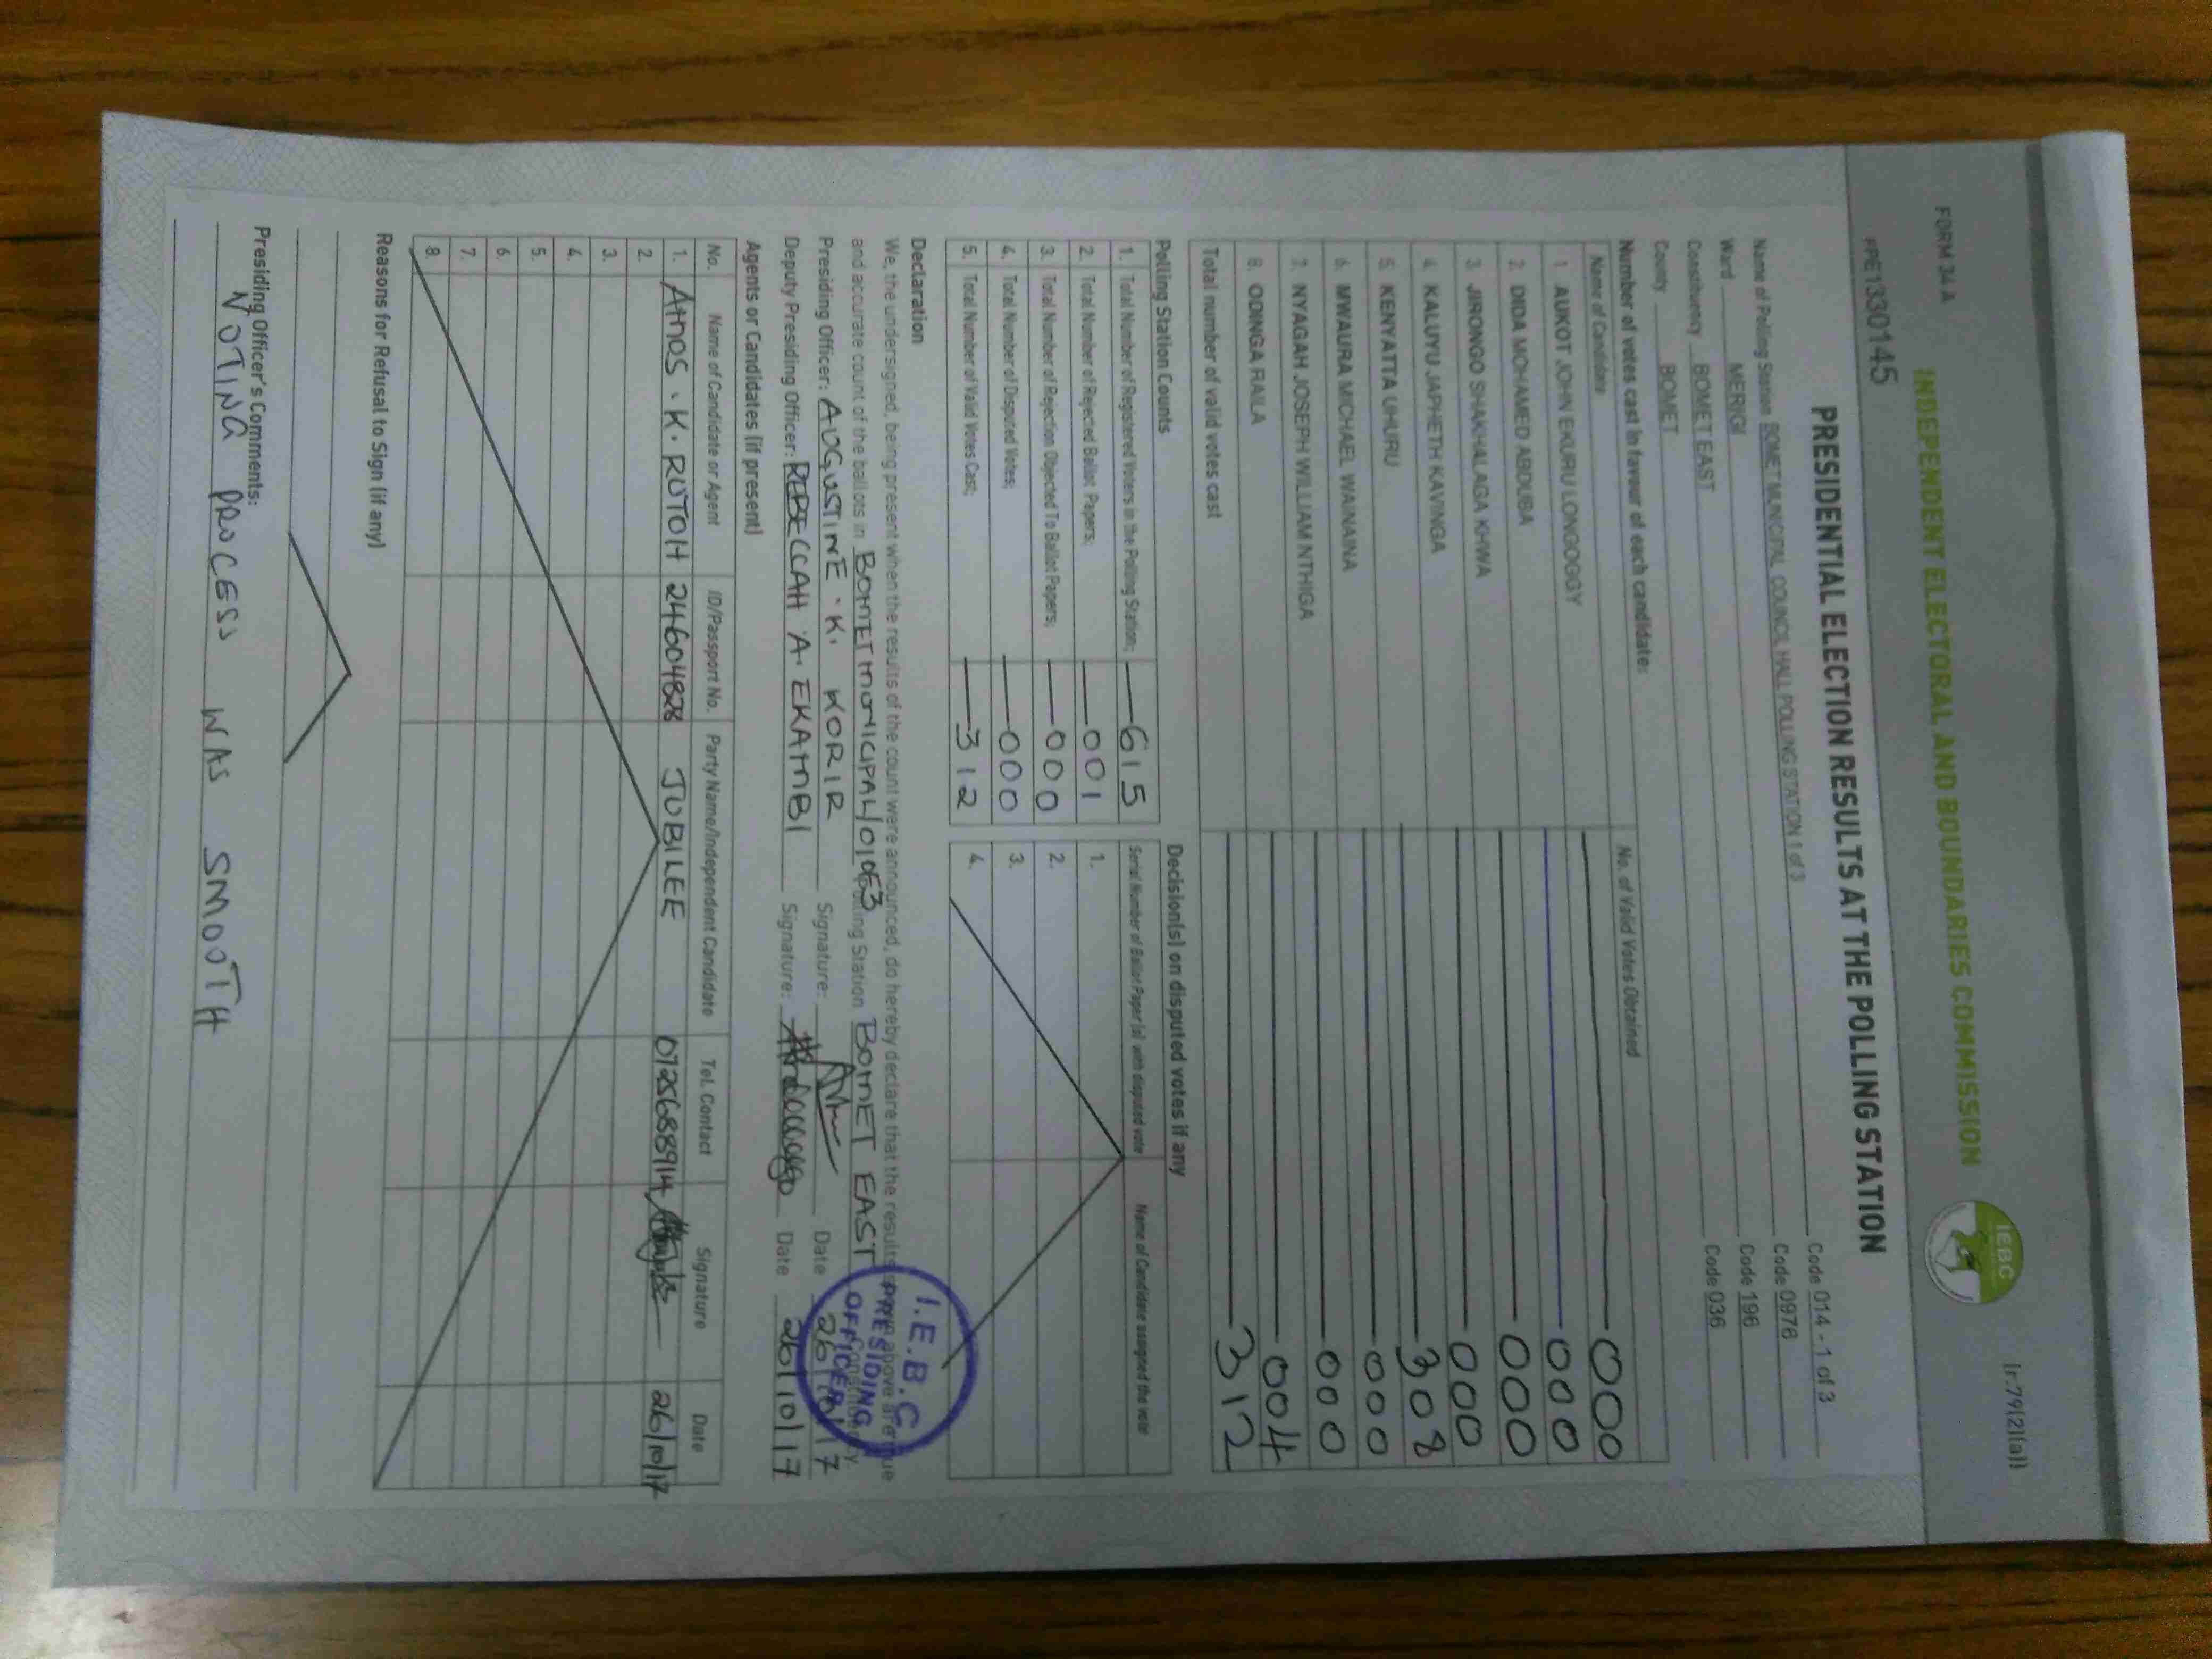 FORM 34 A
[r.79(2)(a)]
INDEPENDENT ELECTORAL AND BOUNDARIES COMMISSION
IEBC
PPE1330145
PRESIDENTIAL ELECTION RESULTS AT THE POLLING STATION
Name of Polling Station BOMET MUNICIPAL COUNCIL HALL POLLING STATION 1 of 3 Code 014 - 1 of 3
Ward MERIGI Code 0976
Constituency BOMET EAST Code 196
County BOMET Code 036
Number of votes cast in favour of each candidate:
Name of Candidate No. of Valid Votes Obtained
1. AUKOT JOHN EKURU LONGOGGY 000
2. DIDA MOHAMED ABDUBA 000
3. JIRONGO SHAKHALAGA KHWA 000
4. KALUYU JAPHETH KAVINGA 000
5. KENYATTA UHURU 308
6. MWAURA MICHAEL WAINAINA 000
7. NYAGAH JOSEPH WILLIAM NTHIGA 000
8. ODINGA RAILA 004
Total number of valid votes cast 312
Polling Station Counts
1. Total Number of Registered Voters in the Polling Station; 615
2. Total Number of Rejected Ballot Papers; 001
3. Total Number of Rejection Objected To Ballot Papers; 000
4. Total Number of Disputed Votes; 000
5. Total Number of Valid Votes Cast; 312
Decision(s) on disputed votes if any
Serial Number of Ballot Paper(s) with disputed vote Name of Candidate assigned the vote
1.
2.
3.
4.
Declaration
We, the undersigned, being present when the results of the count were announced, do hereby declare that the results shown above are true
and accurate count of the ballots in BOMET MUNICIPAL/01OF3 Polling Station BOMET EAST Constituency.
Presiding Officer: AUGUSTINE . K. KORIR Signature: Date 26/10/17
Deputy Presiding Officer: REBECCAH A. EKAMBI Signature: Date 26/10/17
I.E.B.C
PRESIDING
OFFICER
Agents or Candidates (if present)
No. Name of Candidate or Agent ID/Passport No. Party Name/Independent Candidate Tel. Contact Signature Date
1. AMOS . K. RUTOH 24604828 JUBILEE 0725688914 26/10/17
2.
3.
4.
5.
6.
7.
8.
Reasons for Refusal to Sign (if any)
Presiding Officer's Comments:
VOTING PROCESS WAS SMOOTH